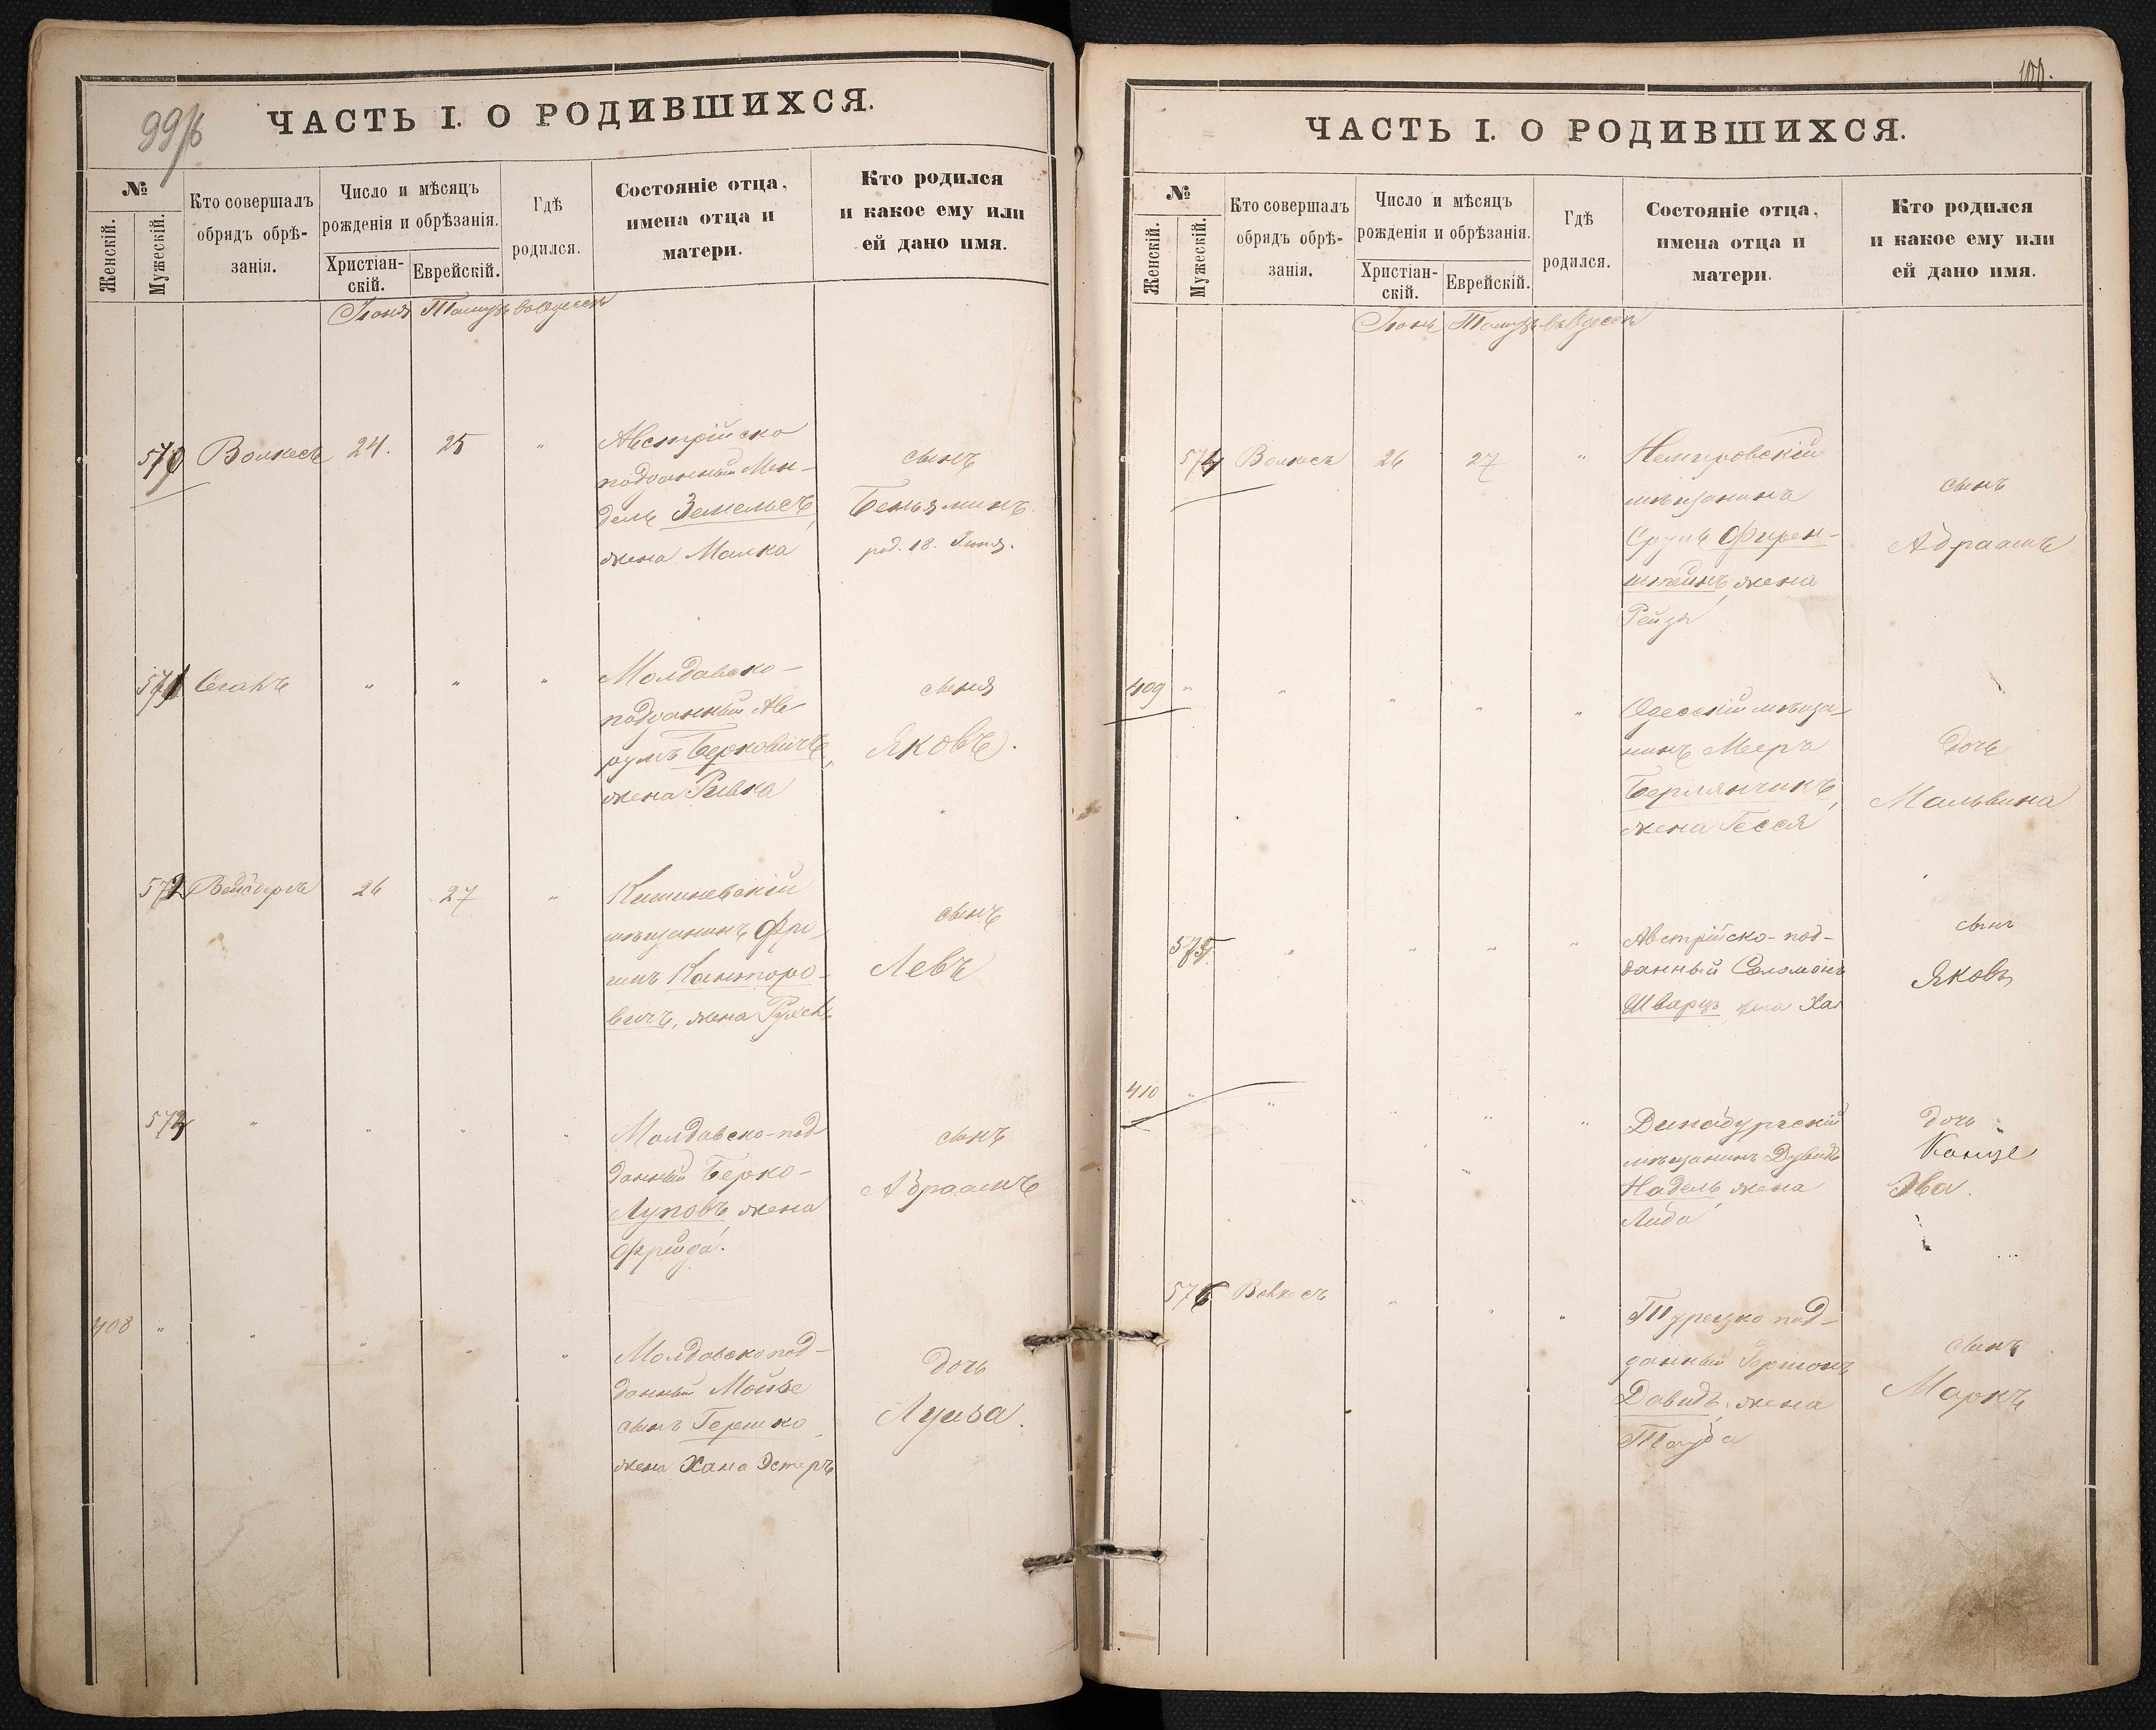 99/б
ЧАСТЬ I. О РОДИВШИХСЯ.
№
Женскій.
Мужескій.
Кто совершалъ
обрядъ обрѣ-
занія.
Число и мѣсяцъ
рожденія и обрѣзанія.
Христіан-
скій.
Еврейскій.
Гдѣ
родился.
Состояніе отца,
имена отца и
матери.
Кто родился
и какое ему или
ей дано имя.
Іюня Тамузъ въ Одессѣ
570 Волкесъ 24. 25 "
Австрійско
подданный Мен-
дель Земельсъ,
жена Малка
сынъ
Беньяминъ
род. 18. Іюня.
571 " " "
Молдавско-
подданный Ав-
румъ Берковичъ,
жена Ривка
сынъ
Яковъ.
572 26 27 "
Кишиневскій
мѣщанинъ Фро-
имъ Канторо-
вичъ, жена
сынъ
Левъ
573 " " " "
Молдавско-под
данный Берко-
Луповъ жена
Фрейда.
сынъ
Абраамъ
408 " " " " "
Молдавскопод-
данный Мойше
сынъ Гершко,
жена Хана Эстеръ
дочь
Луиза.
100.
ЧАСТЬ I. О РОДИВШИХСЯ.
№
Женскій.
Мужескій.
Кто совершалъ
обрядъ обрѣ-
занія.
Число и мѣсяцъ
рожденія и обрѣзанія.
Христіан-
скій.
Еврейскій.
Гдѣ
родился.
Состояніе отца,
имена отца и
матери.
Кто родился
и какое ему или
ей дано имя.
Іюнь Тамузъ въ Одессѣ
574 Волкесъ 26 27 "
Немировскій
мѣщанинъ
Сруль Фирен-
штейнъ, жена
Рейзя
сынъ
Абраамъ
409 " " " " "
Одесскій мѣща-
нинъ Мееръ
Берлянчикъ,
жена Гесся
дочь
Мальвина
575 " " " "
Австрійско-под-
данный Соломонъ
Шварцъ жена Хая
сынъ
Яковъ
410 " " " " "
Динабургскій
мѣщанинъ Дувидъ
Надель жена
Либа
дочь
Эва.
576 Волкесъ " " "
Турецко под-
данный
Давидъ, жена
Тауба
сынъ
Маркъ